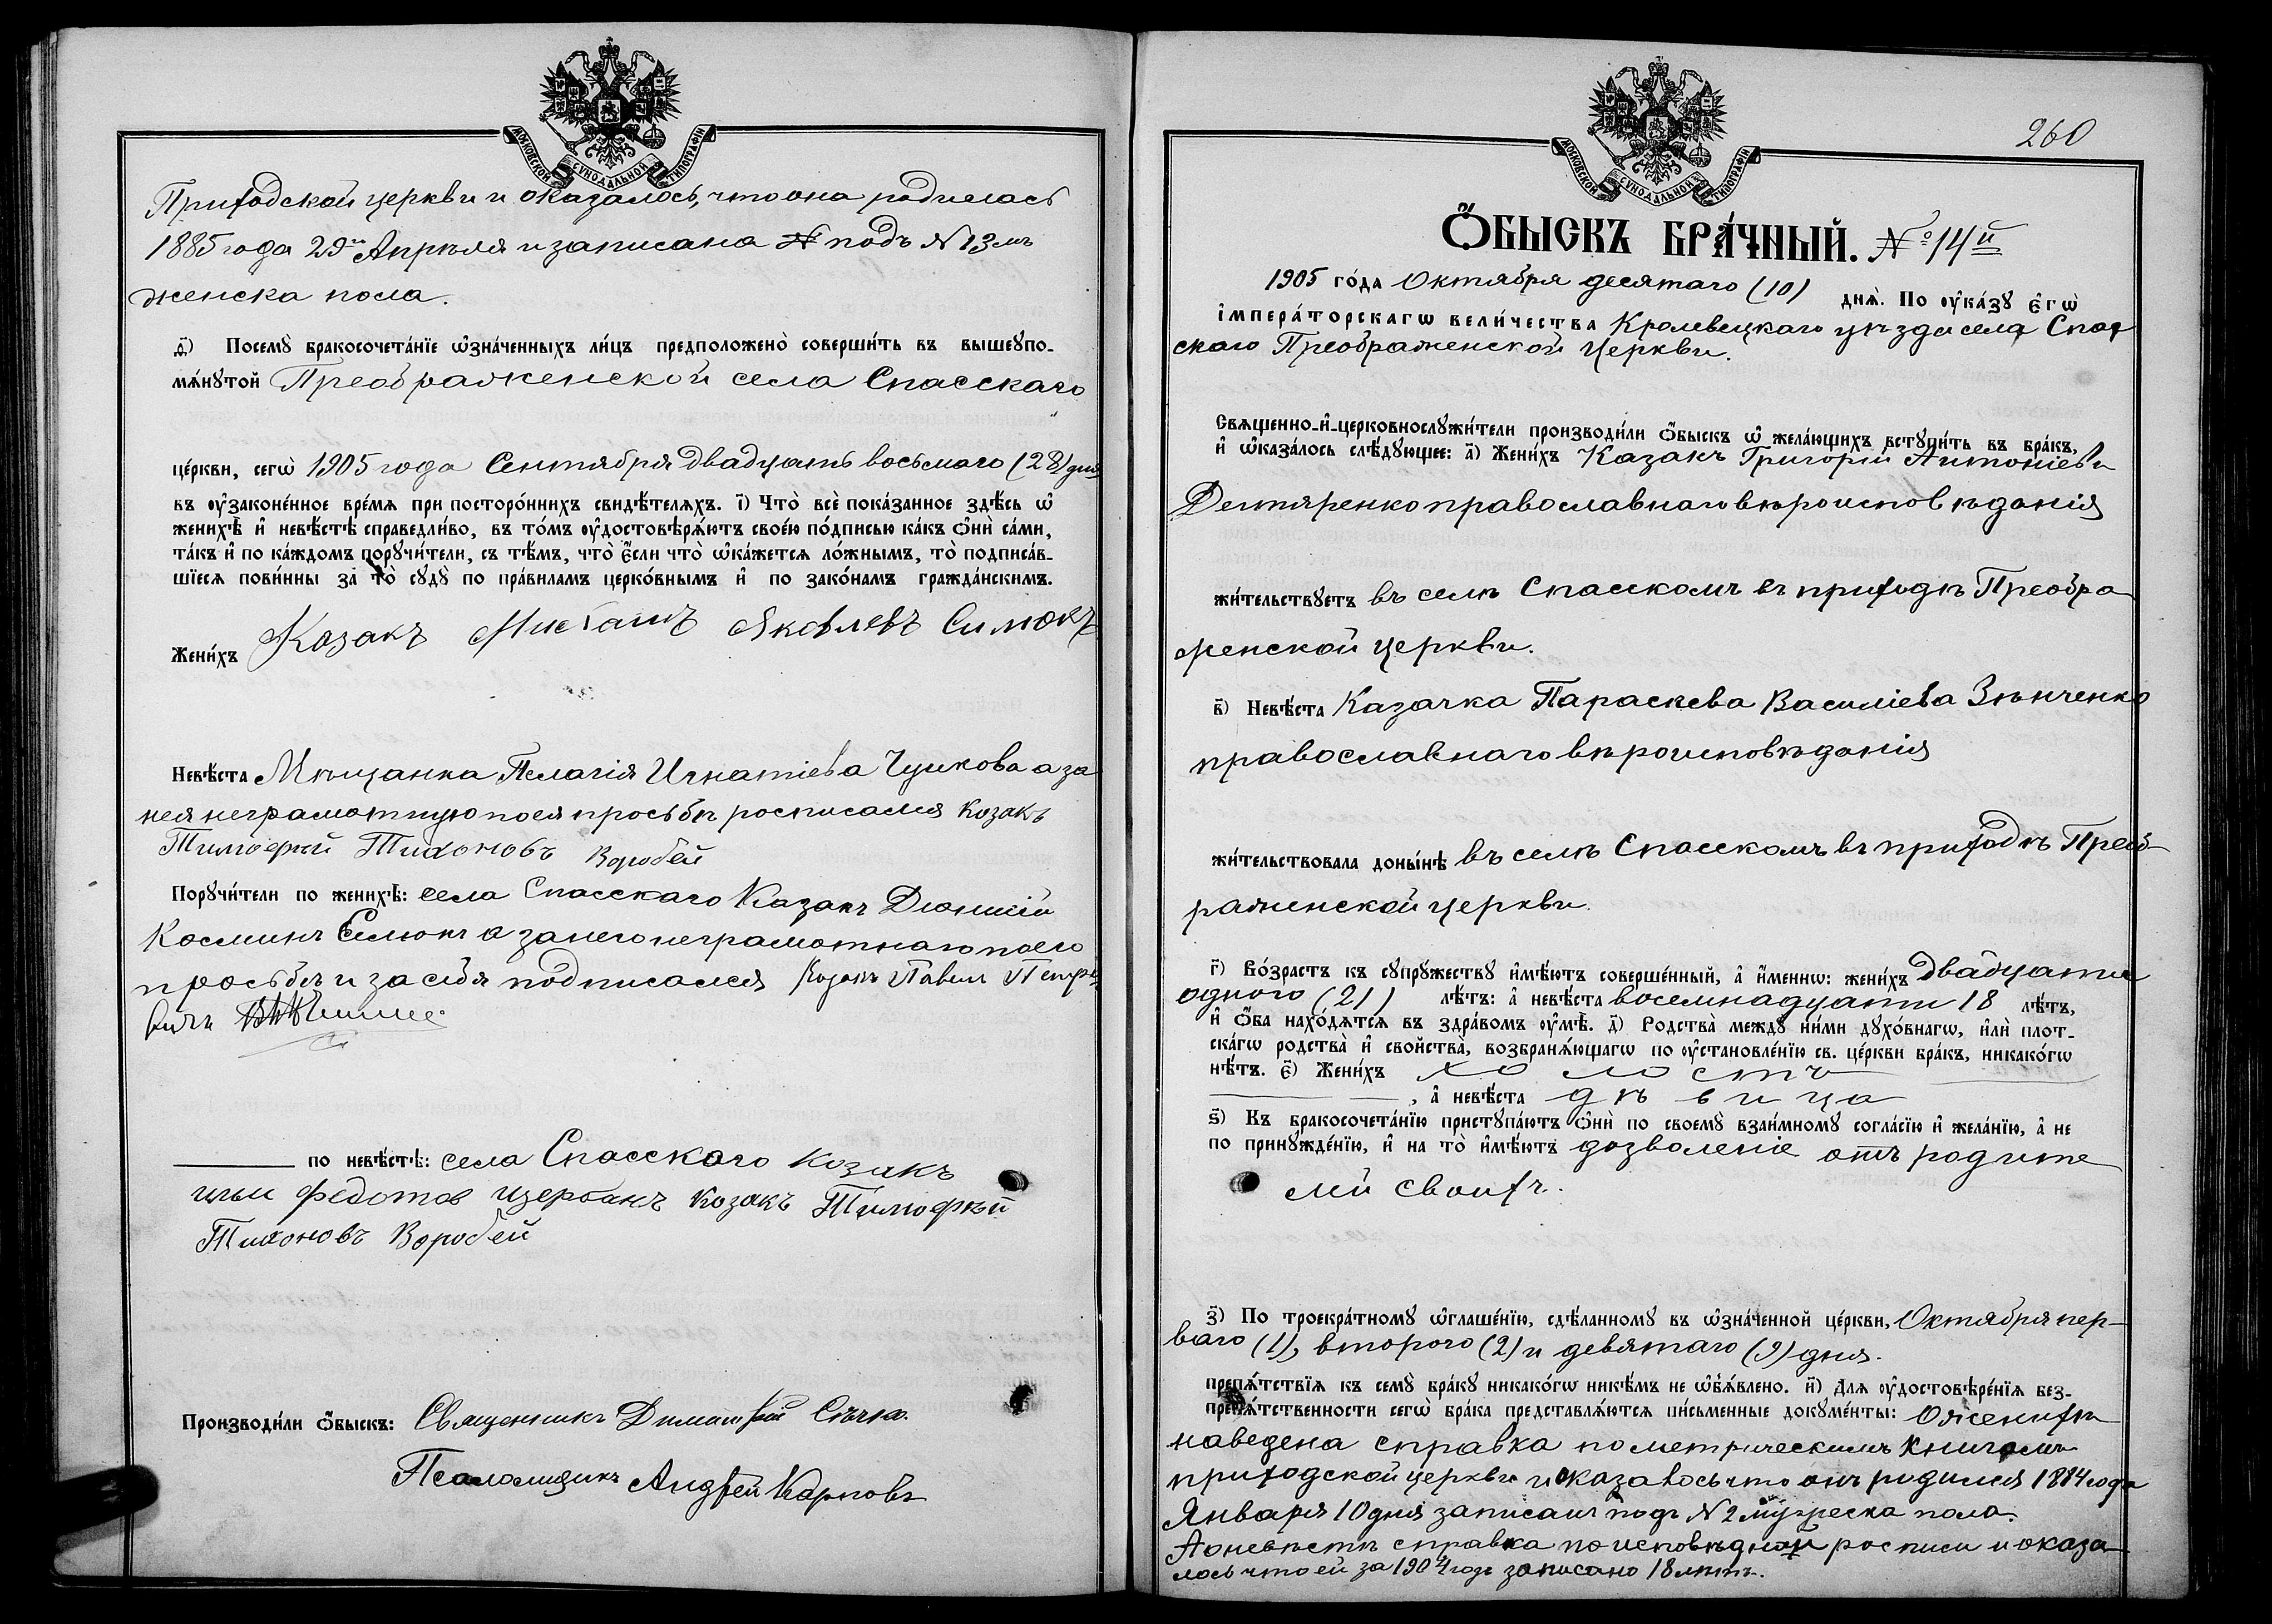 МОСКОВСКОЙ СУНОДАЛЬНОЙ ТИПОГРАФІИ
Приходской церкви и оказалось, что она родилась
1885 года 29го Апрѣля и записана подъ N 13мъ
женска пола.
д҃) Посемꙋ̀ бракосочета́нїе ѡ҆зна́ченныхъ ли́цъ предположено̀ соверши́ть въ вышеꙋпо-
мѧ́нꙋтой Преображенской села Спасскаго
це́ркви, сегѡ̀ 1905 года Сентября двадцать восьмаго (28) дня
въ ᲂу҆законе́нное вре́мѧ при посторо́ннихъ свидѣ́телѧхъ. і҃) Что̀ всѐ пока́занное здѣ́сь ѡ҆
женихѣ̀ и҆ невѣ́стѣ справедли́во, въ то́мъ ᲂу҆достовѣрѧ́ютъ свое́ю по́дписью ка́къ ѻ҆нѝ са́ми,
та́къ и҆ по ка́ждомъ порꙋчи́тели, съ тѣ́мъ, что̀ є҆́сли что̀ ѡ҆ка́жетсѧ ло́жнымъ, то̀ подписа́в-
шїесѧ пови́нны за то̀ сꙋдꙋ̀ по пра́виламъ церко́внымъ и҆ по зако́намъ гражда́нскимъ.
Жени́хъ Козакъ Михаилъ Яковлевъ Силюкъ
Невѣ́ста Мѣщанка Пелагія Игнатіева Чуикова а за
нея неграмотную по ея просьбѣ росписался козакъ
Тимофей Тихоновъ Воробей
Порꙋчи́тели по женихѣ̀: села Спасскаго Казакъ Діонисій
Косминъ Силюкъ а за него неграмотнаго по его
просьбѣ и за себя подписался Козакъ Павелъ Петро
вичъ
по невѣ́стѣ: села Спасского козакъ
Илья Федотов Щербакъ козакъ Тимофѣй
Тихоновъ Воробей
Производи́ли ѻ҆́быскъ: Священникъ Димитрій Сѣчка.
Псаломщикъ Андрей Карповъ
260
МОСКОВСКОЙ СУНОДАЛЬНОЙ ТИПОГРАФІИ
Ѻ҆́БЫСКЪ БРА́ЧНЫЙ. №14й
1905 го́да Октября десятаго (10) днѧ̀. По ᲂу҆ка́зꙋ є҆гѡ̀
і҆мпера́торскагѡ вели́чества Кролевецкаго уѣзда села Спас
скаго Преображенской Церкви.
Свѧщенно-и҆-церковнослꙋжи́тели производи́ли ѻ҆́быскъ ѡ҆ жела́ющихъ встꙋпи́ть въ бра́къ,
и҆ ѡ҆каза́лось слѣ́дꙋющее: а҃) Жени́хъ Казакъ Григорій Антоніевъ
Дегтяренко православнаго вѣроисповѣданія
жи́тельствꙋетъ въ селѣ Спасскомъ въ приходѣ Преобра
женской церкви.
в҃) Невѣ́ста Казачка Параскева Василіева Зѣнченко
православнаго вѣроисповѣданія
жи́тельствовала доны́нѣ въ селѣ Спасскомъ въ приходѣ Преоб-
раженской церкви.
г҃) Во́зрастъ къ сꙋпрꙋ́жествꙋ и҆мѣ́ютъ соверше́нный, а҆ и҆́меннѡ: жени́хъ двадцати
одного (21) лѣ́тъ: а҆ невѣ́ста восемнадцати 18 лѣ́тъ,
и҆ ѻ҆́ба нахо́дѧтсѧ въ здра́вомъ ᲂу҆мѣ̀. д҃) Родства̀ междꙋ̀ ни́ми дꙋхо́внагѡ, и҆лѝ плот-
ска́гѡ родства̀ и҆ свойства̀, возбранѧ́ющагѡ по ᲂу҆становле́нїю св. це́ркви бра́къ, никако́гѡ
нѣ́тъ. є҃) Жени́хъ холостъ
, а҆ невѣ́ста дѣвица
ѕ҃) Къ бракосочета́нїю пристꙋпа́ютъ ѻ҆нѝ по своемꙋ̀ взаи́мномꙋ согла́сїю и҆ жела́нїю, а҆ не
по принꙋжде́нїю, и҆ на то̀ и҆мѣ́ютъ дозволеніе отъ родите
лей своихъ.
з҃) По троекра́тномꙋ ѡ҆глаше́нїю, сдѣ́ланномꙋ въ ѡ҆зна́ченной це́ркви, Октября пер-
ваго (1), второго (2) и девятаго (9) дня.
препѧ́тствїѧ къ семꙋ̀ бра́кꙋ никако́гѡ никѣ́мъ не ѡ҆бъѧ́влено. и҃) Длѧ ᲂу҆достовѣре́нїѧ без-
препѧ́тственности сегѡ̀ бра́ка представлѧ́ютсѧ пи́сьменные докꙋме́нты: О женихѣ
наведена справка по метрическимъ книгамъ
приходской церкви и оказалось что онъ родился 1884 года
Января 10 дня записанъ подъ N 2 мужеска пола.
А о невѣстѣ справка по исповѣдной росписи и оказа-
лось что ей за 1904 годъ записано 18 лѣтъ.